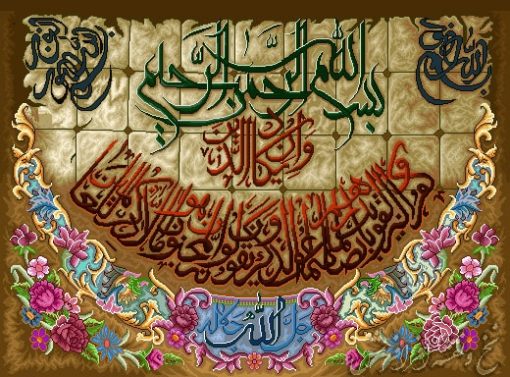 بسم الله الرحمن الرحيم
وان يكاد الذين
كفروا ليزلقونك بابصارهم لما سمعوا الذكر ويقولون انه لمجنون وما هو الا ذكر للعالمين
الله جل جلاله